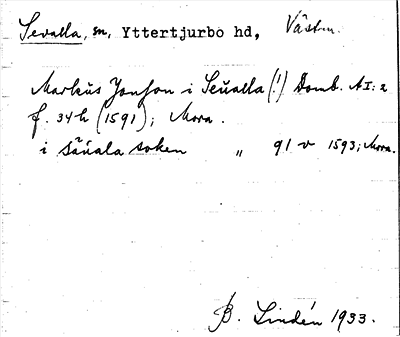 Sevalla, sn, Yttertjurbo hd, Västm.
Markus Jonson i Seŭalla (!) Domb. AI:2
f. 34 h (1591); Mora.
i Säŭala soken " 91 v 1593; Mora.
B. Lindén 1933.